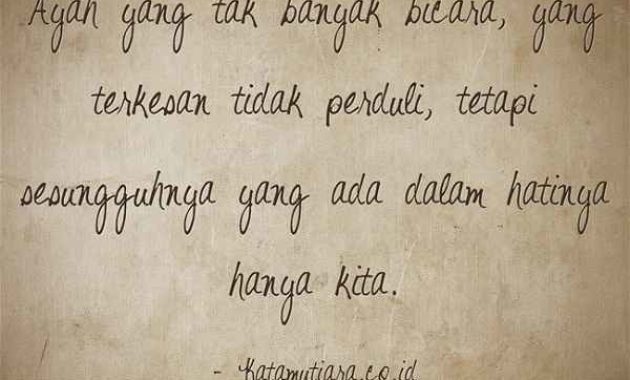 Ayah yang tak banyak bicara, yang
terkesan tidak perduli, tetapi
sesungguhnya yang ada dalam hatinya
hanya kita.
- Katamutiara.co.id